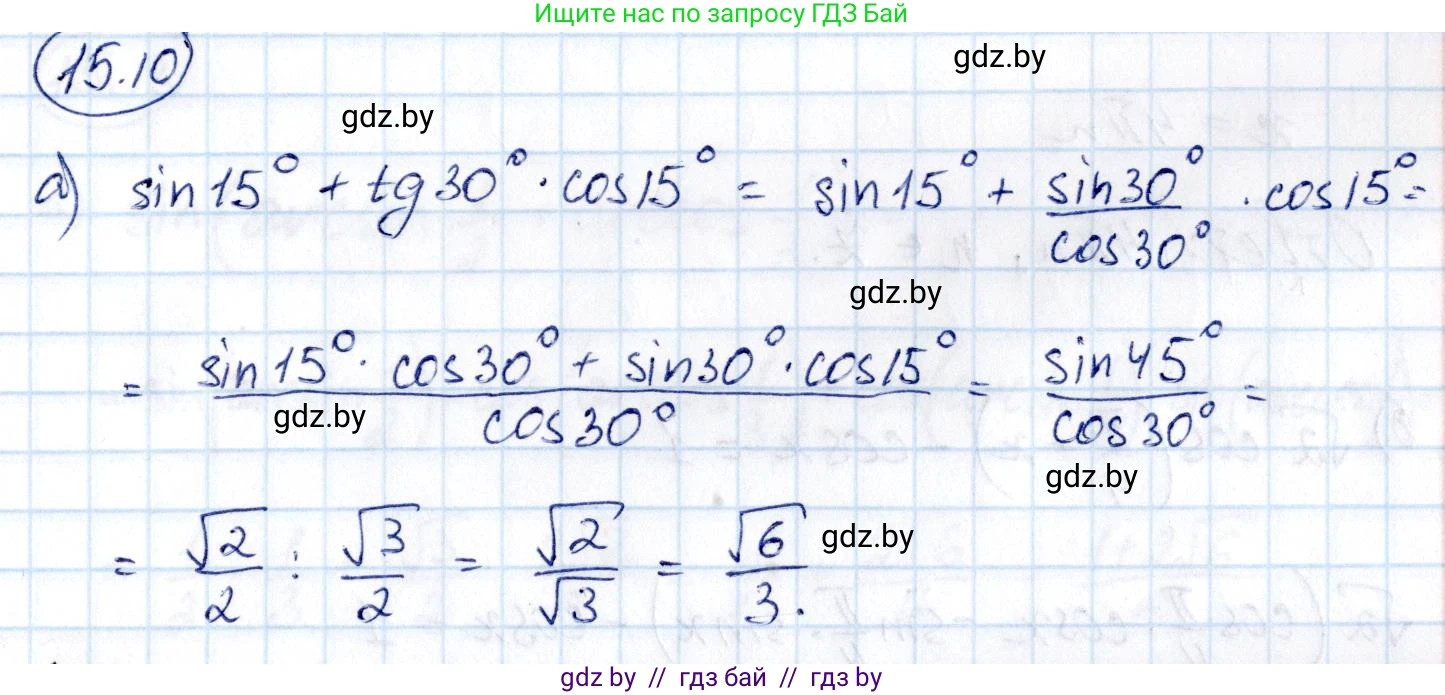 Ищите нас по запросу ГДЗ Бай
15.10
gdz.by
gdz.by
а) sin15° + tg30° · cos15° = sin15° + sin30°/cos30° · cos15° =
gdz.by
= (sin15° · cos30° + sin30° · cos15°)/cos30° = sin45°/cos30° =
gdz.by
gdz.by
= √2/2 : √3/2 = √2/√3 = √6/3.
gdz.by
gdz.by // гдз бай // гдз by